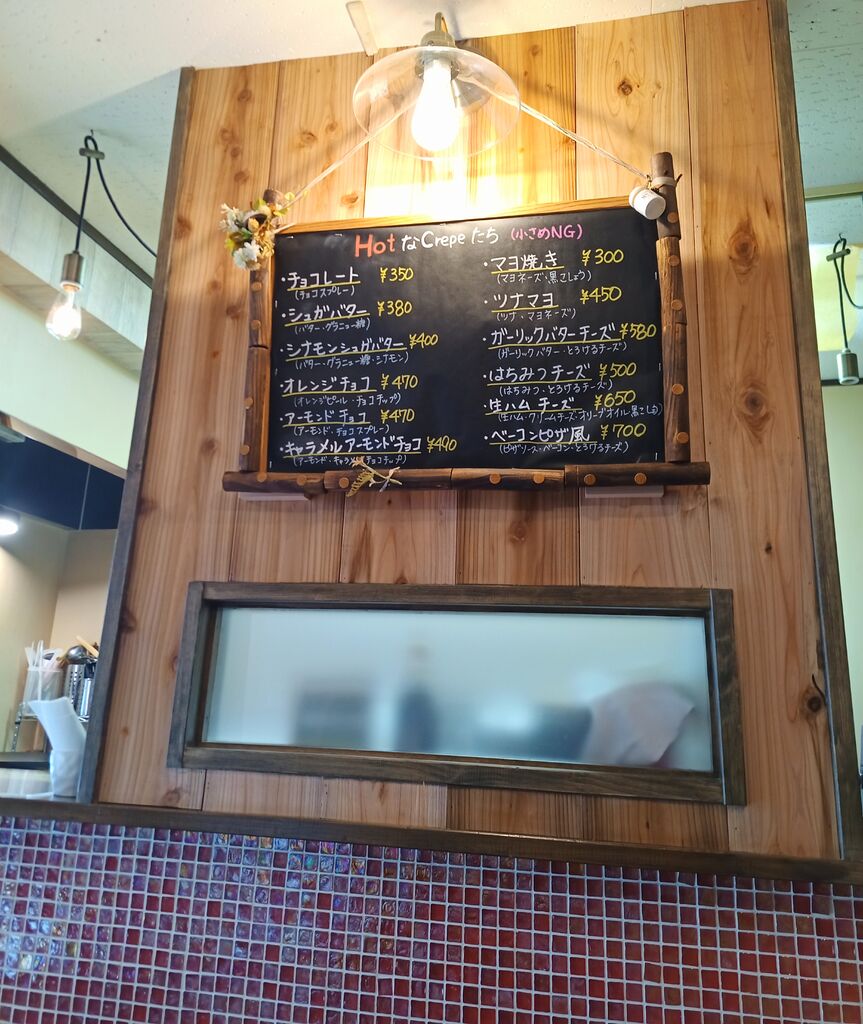 HotなCrepeたち (小さめNG)
・チョコレート ¥350
(チョコスプレー)
・シュガバター ¥380
(バター・グラニュー糖)
・シナモンシュガバター ¥400
(バター・グラニュー糖・シナモン)
・オレンジチョコ ¥470
(オレンジピール・チョコチップ)
・アーモンドチョコ ¥470
(アーモンド・チョコスプレー)
・キャラメルアーモンドチョコ ¥490
(アーモンド・キャラメル・チョコチップ)
・マヨ焼き ¥300
(マヨネーズ・黒こしょう)
・ツナマヨ ¥450
(ツナ・マヨネーズ)
・ガーリックバターチーズ ¥580
(ガーリックバター・とろけるチーズ)
・はちみつチーズ ¥500
(はちみつ・とろけるチーズ)
・生ハムチーズ ¥650
(生ハム・クリームチーズ・オリーブオイル・黒こしょう)
・ベーコンピザ風 ¥700
(ピザソース・ベーコン・とろけるチーズ)